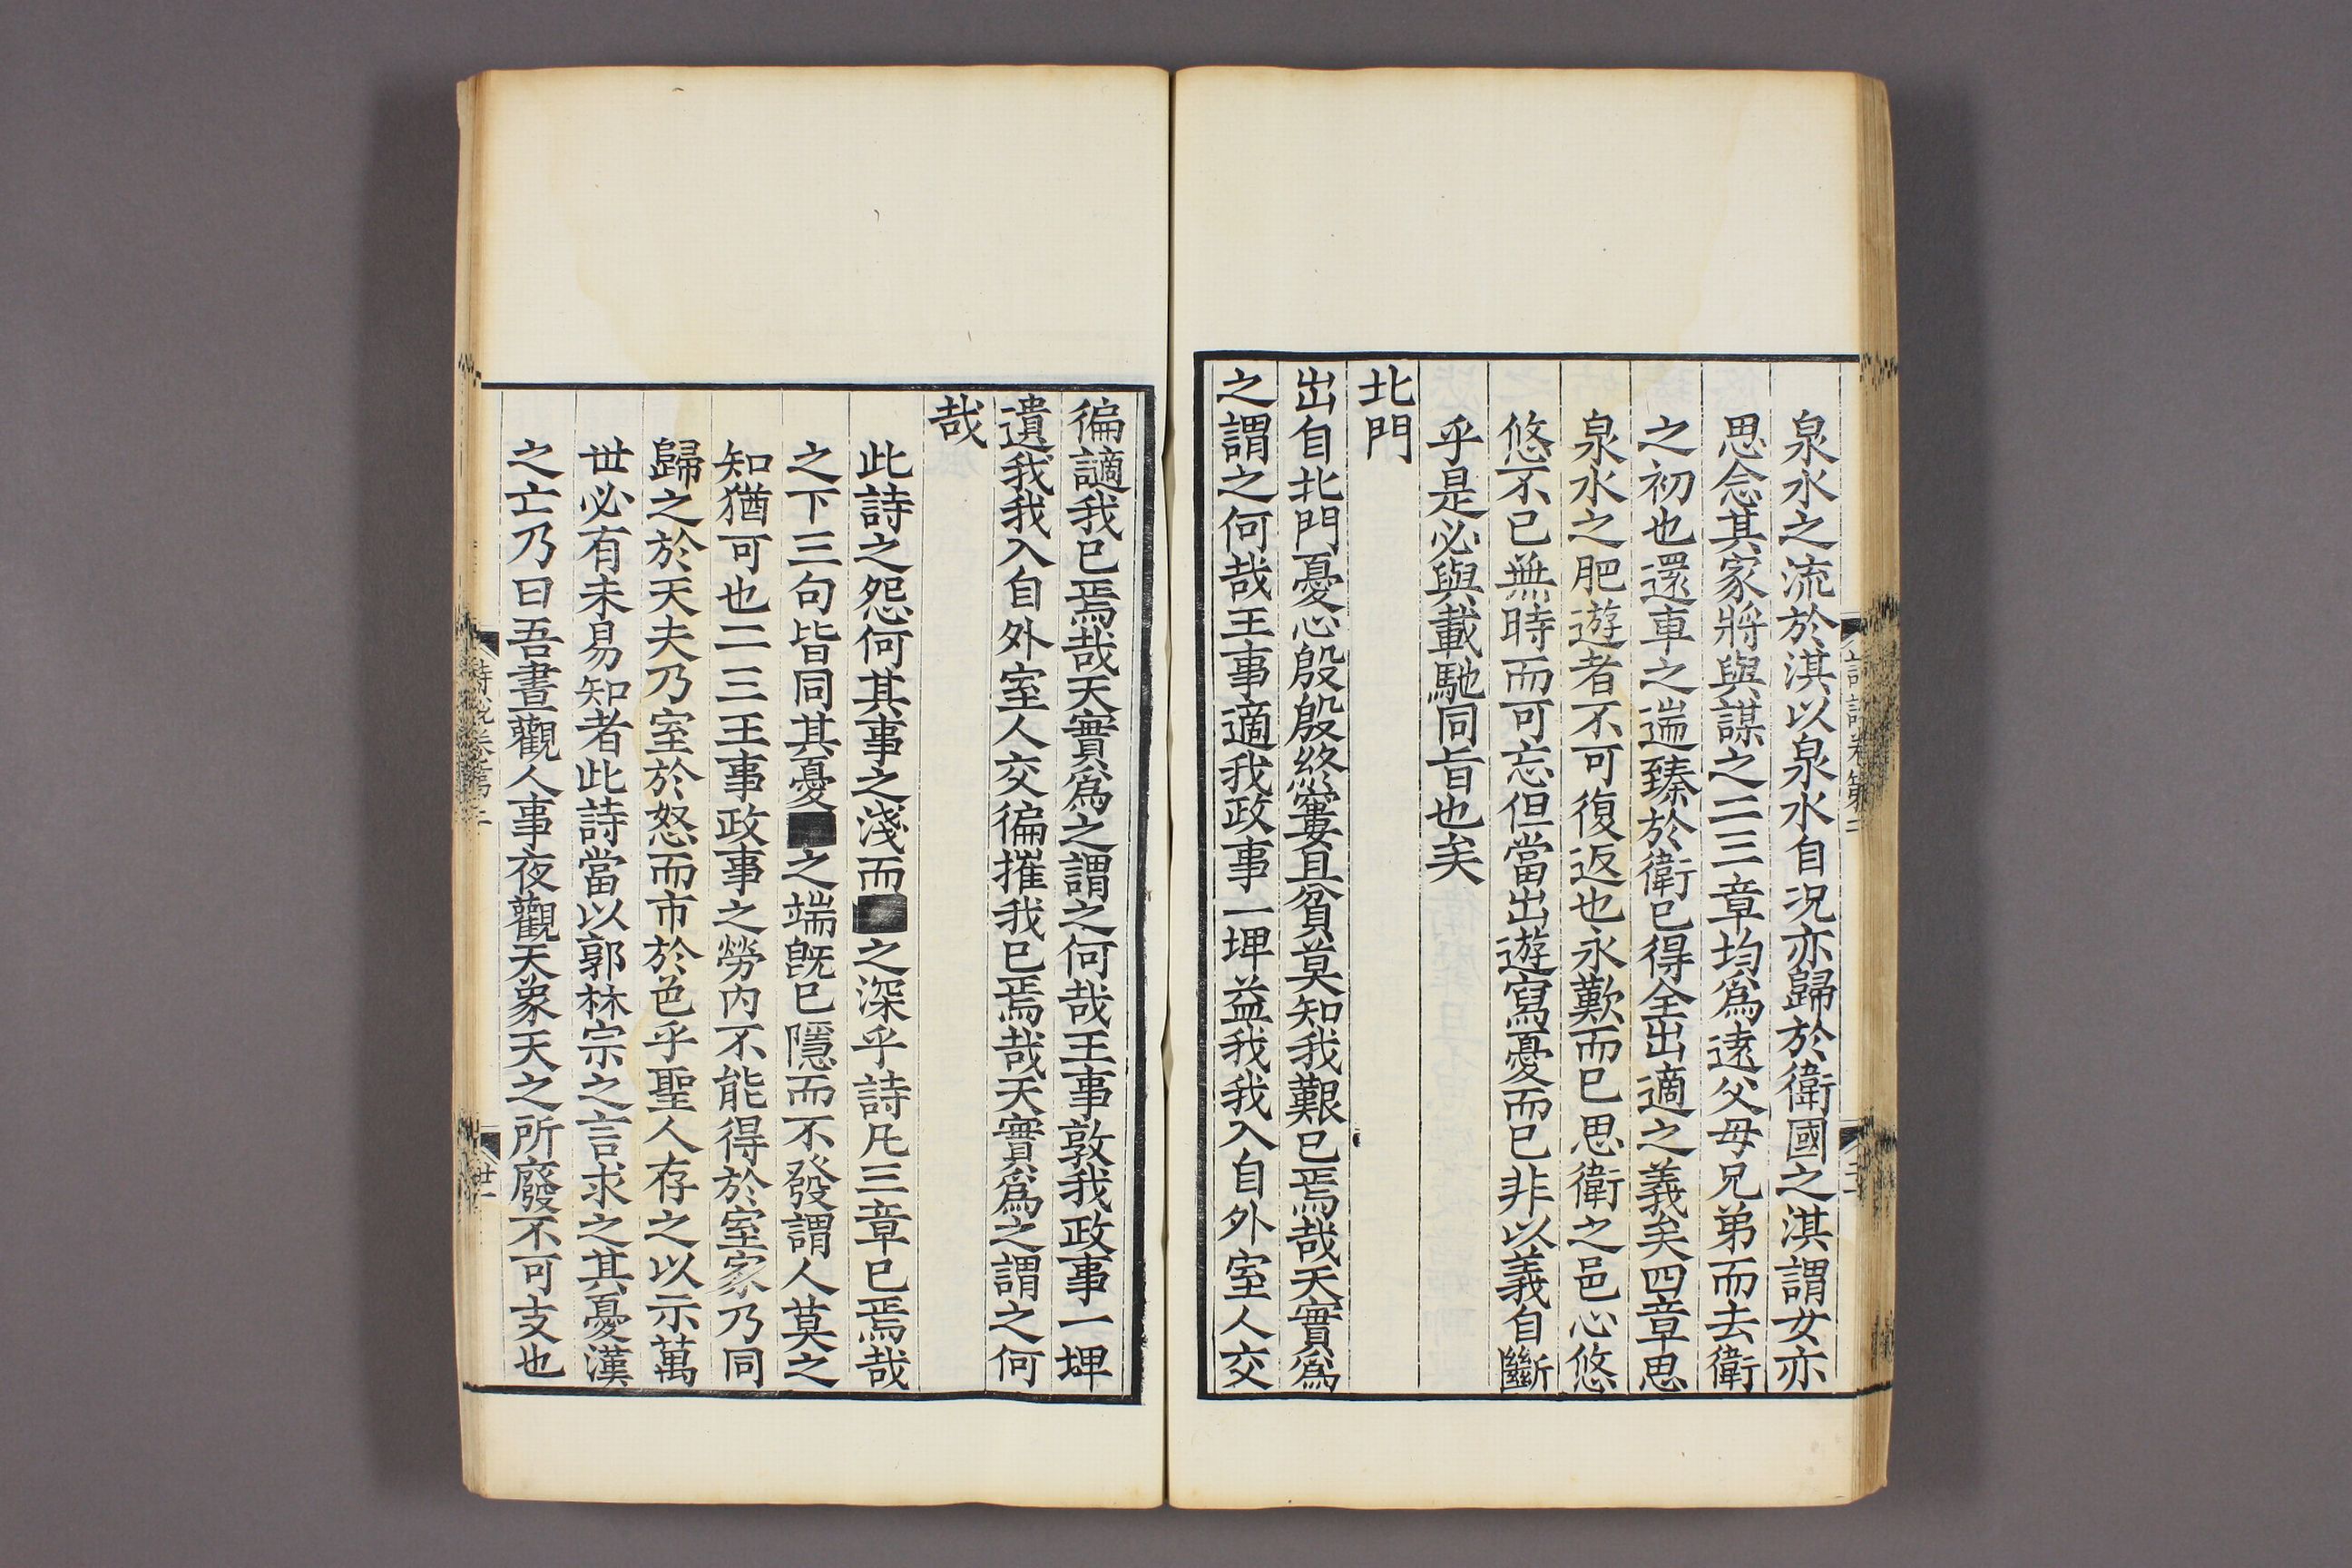 泉水之流於淇以泉水自况亦歸於衛國之淇謂女亦
思念其家將與謀之二三章均爲遠父母兄弟而去衛
之初也還車之遄臻於衛已得全出適之義矣四章思
泉水之肥遊者不可復返也永歎而已思衛之邑心悠
悠不已無時而可忘但當出遊寫憂而已非以義自斷
乎是必與載馳同旨也矣
北門
出自北門憂心殷殷終窶且貧莫知我艱已焉哉天實爲
之謂之何哉王事適我政事一埤益我我入自外室人交
徧讁我已焉哉天實爲之謂之何哉王事敦我政事一埤
遺我我入自外室人交徧摧我已焉哉天實爲之謂之何
哉
此詩之怨何其事之淺而■之深乎詩凡三章已焉哉
之下三句皆同其憂■之端旣已隱而不發謂人莫之
知猶可也二三王事政事之勞内不能得於室家乃同
歸之於天夫乃室於怒而市於色乎聖人存之以示萬
世必有未易知者此詩當以郭林宗之言求之其憂漢
之亡乃曰吾晝觀人事夜觀天象天之所廢不可支也
詩説卷第二
廿一